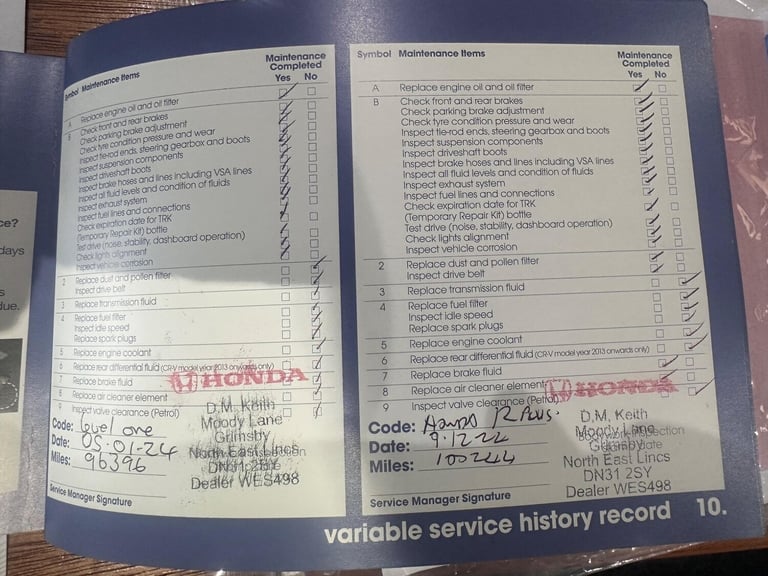 ce?
days
s
due.
Symbol Maintenance Items
Maintenance
Completed
Yes No
A Replace engine oil and oil filter
B Check front and rear brakes
Check parking brake adjustment
Check tyre condition pressure and wear
Inspect tie-rod ends, steering gearbox and boots
Inspect suspension components
Inspect driveshaft boots
Inspect brake hoses and lines including VSA lines
Inspect all fluid levels and condition of fluids
Inspect exhaust system
Inspect fuel lines and connections
Check expiration date for TRK
(Temporary Repair Kit) bottle
Test drive (noise, stability, dashboard operation)
Check lights alignment
Inspect vehicle corrosion
2 Replace dust and pollen filter
Inspect drive belt
3 Replace transmission fluid
4 Replace fuel filter
Inspect idle speed
Replace spark plugs
5 Replace engine coolant
6 Replace rear differential fluid (CR-V model year 2013 onwards only)
7 Replace brake fluid
8 Replace air cleaner element
9 Inspect valve clearance (Petrol)
HONDA
Code: level one
Date: 05.01-24
Miles: 96396
D.M. Keith
Moody Lane
Grimsby
North East Lincs
DN31 2SY
Dealer WES498
Service Manager Signature
Symbol Maintenance Items
Maintenance
Completed
Yes No
A Replace engine oil and oil filter
B Check front and rear brakes
Check parking brake adjustment
Check tyre condition pressure and wear
Inspect tie-rod ends, steering gearbox and boots
Inspect suspension components
Inspect driveshaft boots
Inspect brake hoses and lines including VSA lines
Inspect all fluid levels and condition of fluids
Inspect exhaust system
Inspect fuel lines and connections
Check expiration date for TRK
(Temporary Repair Kit) bottle
Test drive (noise, stability, dashboard operation)
Check lights alignment
Inspect vehicle corrosion
2 Replace dust and pollen filter
Inspect drive belt
3 Replace transmission fluid
4 Replace fuel filter
Inspect idle speed
Replace spark plugs
5 Replace engine coolant
6 Replace rear differential fluid (CR-V model year 2013 onwards only)
7 Replace brake fluid
8 Replace air cleaner element
9 Inspect valve clearance (Petrol)
HONDA
Code: Plus
Date: 9.12.
Miles:
D.M. Keith
Moody Lane
Grimsby
North East Lincs
DN31 2SY
Dealer WES498
Service Manager Signature
variable service history record 10.